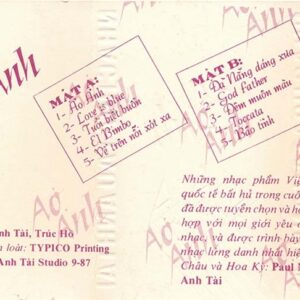 Anh
MẶT A:
1- Áo Anh
2- Love is blue
3- Tuổi biết buồn
4- El Bimbo
5- Về trên nỗi xót xa
MẶT B:
1- Đà Nẵng dáng xưa
2- God father
3- Đêm muôn màu
4- Toccata
5- Bão tình
Anh Tài, Trúc Hồ
loạt: TYPICO Printing
Anh Tài Studio 9-87
Những nhạc phẩm Việ
quốc tế bất hủ trong cuố
đã được tuyển chọn và h
hợp với mọi giới yêu
nhạc, và được trình bày
nhạc lừng danh nhất hiện
Châu và Hoa Kỳ: Paul
Anh Tài
Áo Anh
Áo Anh
Áo Anh